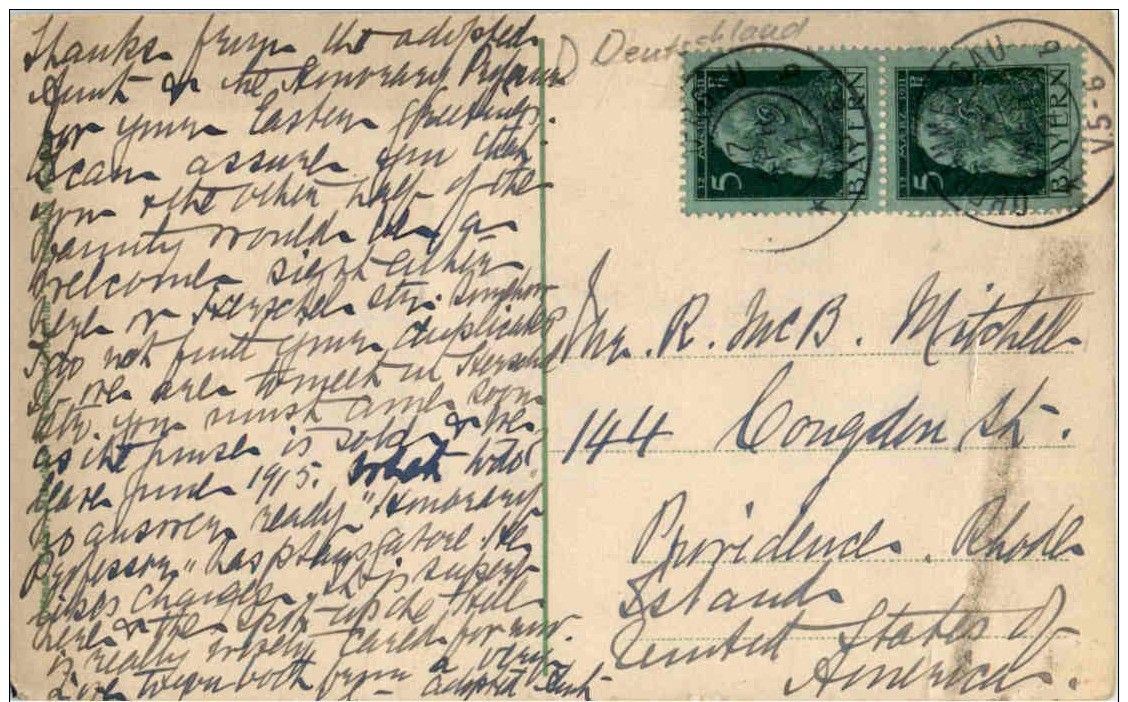 Thanks from the adopted
Aunt & the Honorary Professor
for your Eastern greetings.
I can assure you that
you & the other half of the
family would be a
welcome sight either
here or Herschel Str. Somehow
I do not find your duplicates
If we are to meet in Herschel
Str. you must come soon
as the house is sold & we
leave June 1915. What to do?
No answer ready "Honorary
Professor" has
charge. It is
here & the spot up the hill
is really cared for now.
Love to you both from a very
adopted Aunt
Deutschland
5 BAYERN
5 BAYERN
V.5-6
Mr. R. McB. Mitchell
144 Congdon St.
Providence, Rhode
Island
United States of
America.